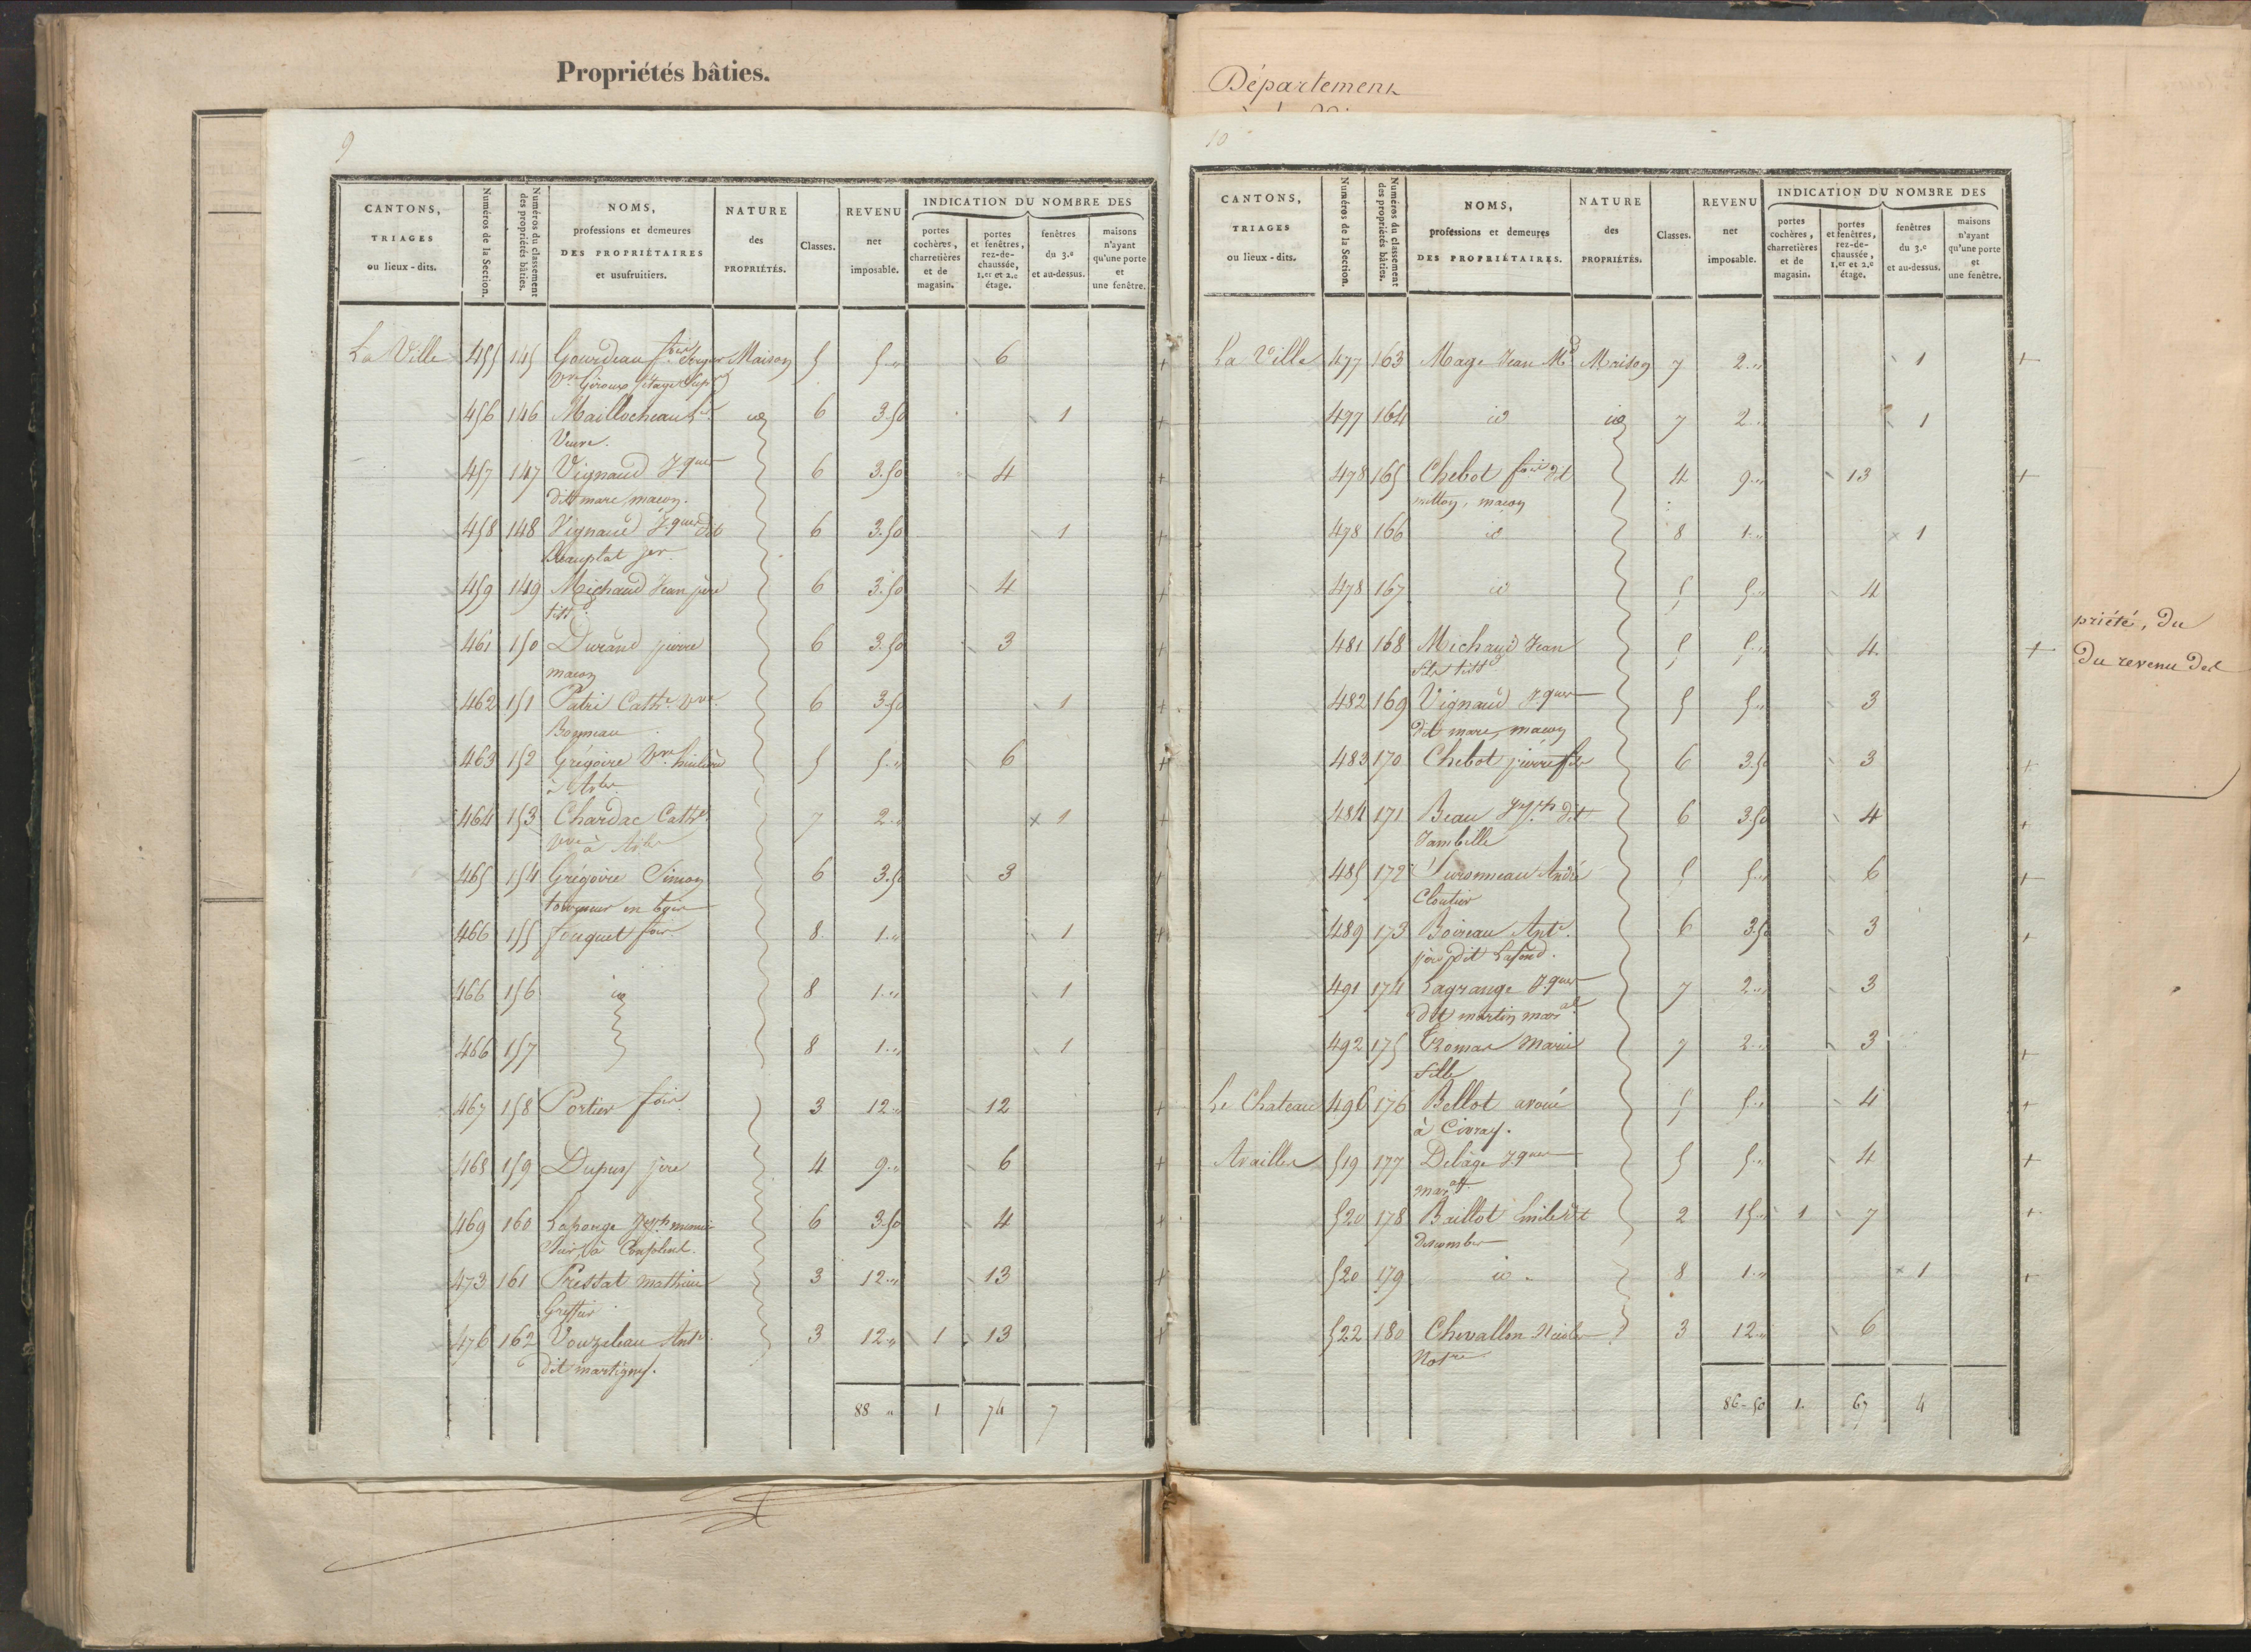 Propriétés bâties.
9
CANTONS, TRIAGES ou lieux-dits.
Numéros de la Section.
Numéros du classement des propriétés bâties.
NOMS, professions et demeures DES PROPRIÉTAIRES et usufruitiers.
NATURE des PROPRIÉTÉS.
Classes.
REVENU net imposable.
INDICATION DU NOMBRE DES
portes cochères, charretières et de magasin.
portes et fenêtres, rez-de-chaussée, 1.er et 2.e étage.
fenêtres du 3.e et au-dessus.
maisons n'ayant qu'une porte et une fenêtre.
La Ville 455 145 Gourdeau Maison 5 5 „ 6
Vve Giroux
456 146 Maillocheau id 6 3.50 1
Veuve.
457 147 Vignaud Jques 6 3.50 4
dit mare, maçon.
458 148 Vignaud Jques dit 6 3.50 1
Beauplat
459 149 Michaud Jean père 6 3.50 4
tissd
461 150 Durand pierre 6 3.50 3
maçon
462 151 Patri Cathe. vve. 6 3.50 1
Bonneau
463 152 Grégoire Vve 5 5 „ 6
464 153 Chardac Cathe. 7 2 „ 1
vve à
465 154 Grégoire Simon 6 3.50 3
tourneur en
466 155 fouquet fois 8 1 „ 1
466 156 id 8 1 „ 1
466 157 8 1 „ 1
467 158 Portier fois 3 12 „ 12
468 159 Dupuy père 4 9 „ 6
469 160 Laponge Jesph menui 6 3.50 4
sier, à Confolens.
473 161 Pressat mathieu 3 12 „ 13
Greffier
476 162 Vouzeleau Ante. 3 12 „ 1 13
dit martigny.
88 „ 1 74 7
Département
10
CANTONS, TRIAGES ou lieux-dits.
Numéros de la Section.
Numéros du classement des propriétés bâties.
NOMS, professions et demeures DES PROPRIÉTAIRES.
NATURE des PROPRIÉTÉS.
Classes.
REVENU net imposable.
INDICATION DU NOMBRE DES
portes cochères, charretières et de magasin.
portes et fenêtres, rez-de-chaussée, 1.er et 2.e étage.
fenêtres du 3.e et au-dessus.
maisons n'ayant qu'une porte et une fenêtre.
La Ville 477 163 Mage Jean Md Maison 7 2 „ 1
477 164 id id 7 2 „ 1
478 165 Chebot fois dit 4 9 „ 13
milton, maçon
478 166 id 8 1 „ 1
478 167 id 5 5 „ 4
481 168 Michaud Jean 5 5 „ 4
fils tissd
482 169 Vignaud Jques 5 5 „ 3
dit mare, maçon
483 170 Chebot pierre fils 6 3.50 3
484 171 Beau Jesph dit 6 3.50 4
Jambille
485 172 Suronneau André 5 5 „ 6
Cloutier
489 173 Boireau Ante. 6 3.50 3
père dit Lafond.
491 174 Lagrange Jques 7 2 „ 3
dit martin maral
492 175 Thomas Marie 7 2 „ 3
fille
Le Chateau 496 176 Bellot avoué 5 5 „ 4
à Civray.
Availles 519 177 Delage Jques 5 5 „ 4
maral
520 178 Baillot Emile dit 2 15 „ 1 7
520 179 id. 8 1 „ 1
522 180 Chevallon Nicolas 3 12 „ 6
Notre.
86-50 1. 67 4
priété, du
du revenu des